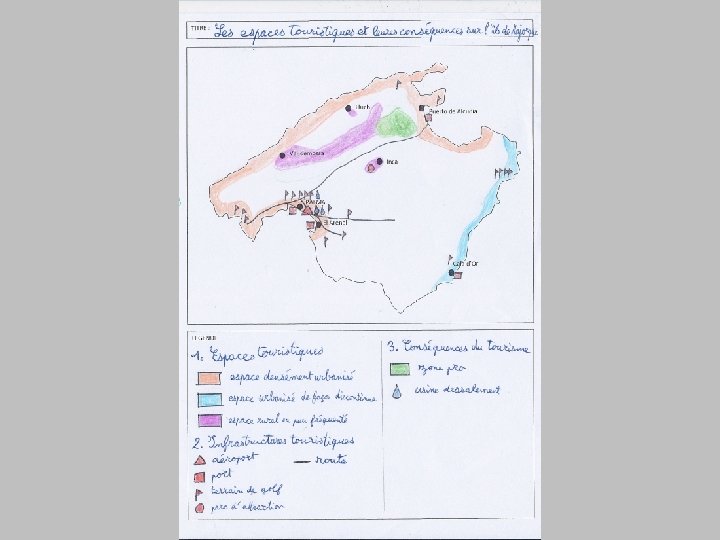 TITRE: Les espaces touristiques et leurs conséquences sur l'île de Majorque
Lluch
Puerto de Alcudia
Valldemossa
Inca
PALMA
El Arenal
Cala d'Or
LEGENDE
1. Espaces touristiques
espace densément urbanisé
espace urbanisé de façon discontinue
espace rural ou peu fréquenté
2. Infrastructures touristiques
aéroport
route
port
terrain de golf
parc d'attraction
3. Conséquences du tourisme
zone
usine dessalement